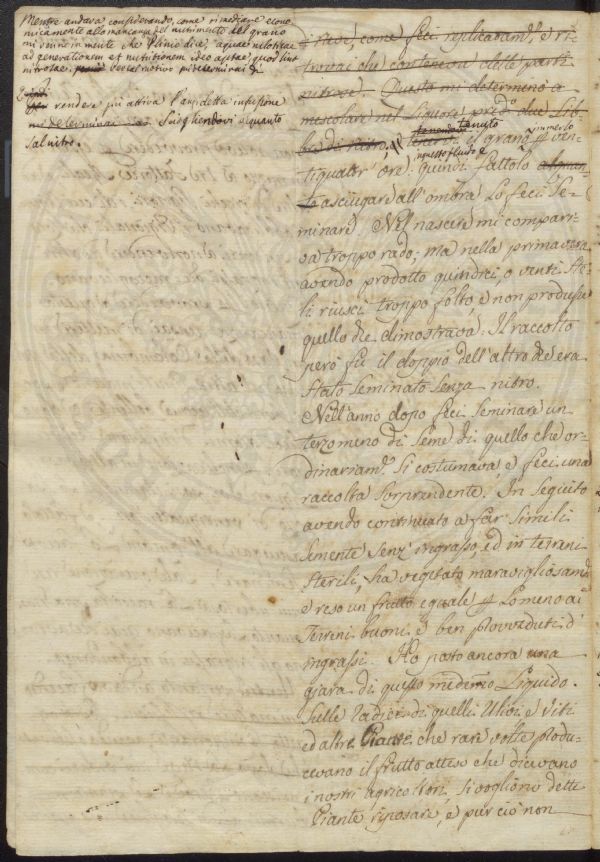 Mentre andava considerando, come rimediare econo-
micamente alla mancanza del nutrimento del grano
mi venne in mente che Plinio dice, aquae nilotitae
ad generationem et nutritionem ideo aptae, quod sint
nitrosae
rendere più attiva l'anzidetta infusione
mi determinai Sciogliendovi alquanto
Salnitro.
come feci replicatam.e e ri-
trovai che conteneva delle parti
nitrose. Questo mi determinò a
mescolare nel Liquore pred.o due Lib-
bre di nitro, tenutovi il grano immerso
in questo fluido ven-
tiquatr' ore. quindi fattolo alquan-
to asciugare all'ombra Lo feci Se-
minare. Nel nascere mi compari-
va troppo rado; ma nella primavera
avendo prodotto quindici, o venti Ste-
li riuscì troppo folto, e non produsse
quello che dimostrava: Il raccolto
però fù il doppio dell'altro che era
Stato Seminato Senza nitro.
Nell'anno dopo feci Seminare un
terzo meno di Seme di quello che or-
dinariam.e Si costumava, e feci una
raccolta Sorprendente. In Seguito
avendo continuato a far Simili
Semente Senz' ingrasso, ed in terreni
Sterili, ha vegetato maravigliosam.e
e reso un frutto eguale Lo meno ai
Terreni buoni, e ben provveduti d'
ingrassi. Ho posto ancora una
giara di questo medemo Liquido
Sulle radici di quelli Ulivi, e viti
ed altre Piante, che rare volte produ-
cevano il frutto atteso che dicevano
i nostri agricoltori. Si vogliono dette
Piante riposare, e pur ciò non